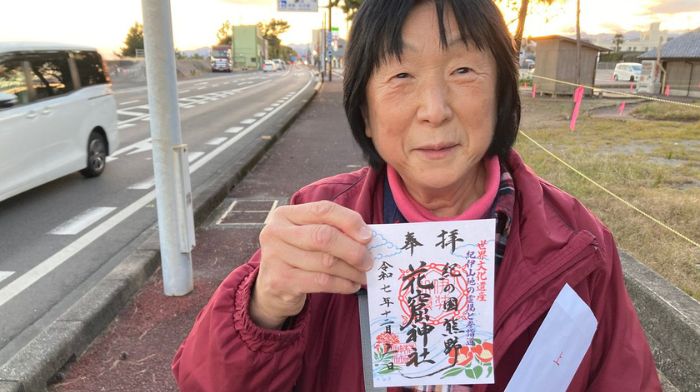 世界文化遺産
紀伊山地の霊場と参詣道
奉拝
紀の国熊野
花窟神社
令和七年十二月
日